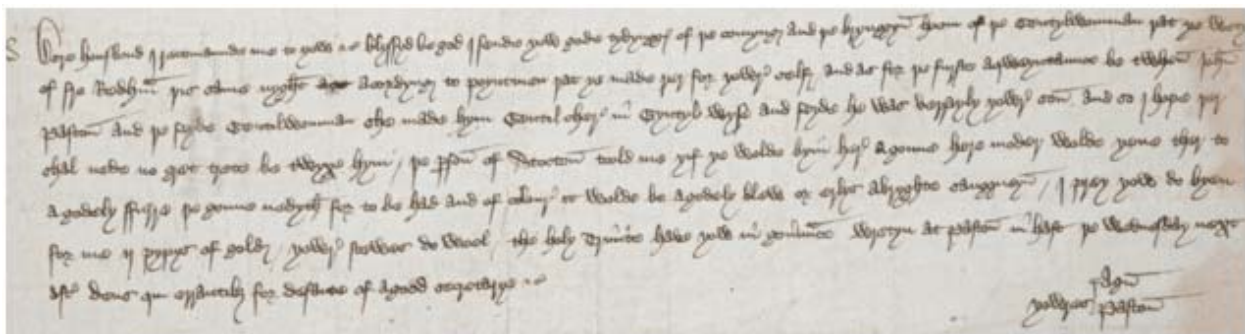 Dere housbond I recomaunde me to yow &c blyssyd be god I sende yow gode tydynggys of þe comyng and þe brynggyn hoom of þe gentylwomman þat ye wetyn
of fro Redhm̄ þis same nyght acordyng to poyntmen þat ye made þer for yowr self and as for þe furste aqweyntaunce be twhen John
Paston and þe seyde gentilwomman she made hym gentil cher in gyntyl wyse and seyde he was verrayly yowr son and so I hope þer
shal nede no gret trete be twyxe hym / þe p̄son of Stocton toold me yif ye wolde byin her a goune here moder wolde yeue ther to
a godely ffurre þe goune nedyth for to be had and of colour it wolde be a godely blew or erlys a bryghte sanggueyn / I prey yow do byen
for me ij pypys of gold / yowr stewes do weel / the holy Trinite have yow in gouernaunce wretyn at Paston in hast þe Wednesday next
aftr deus qui errantibz for defaute of a good secretarye &c
yowres Agn̄ Paston